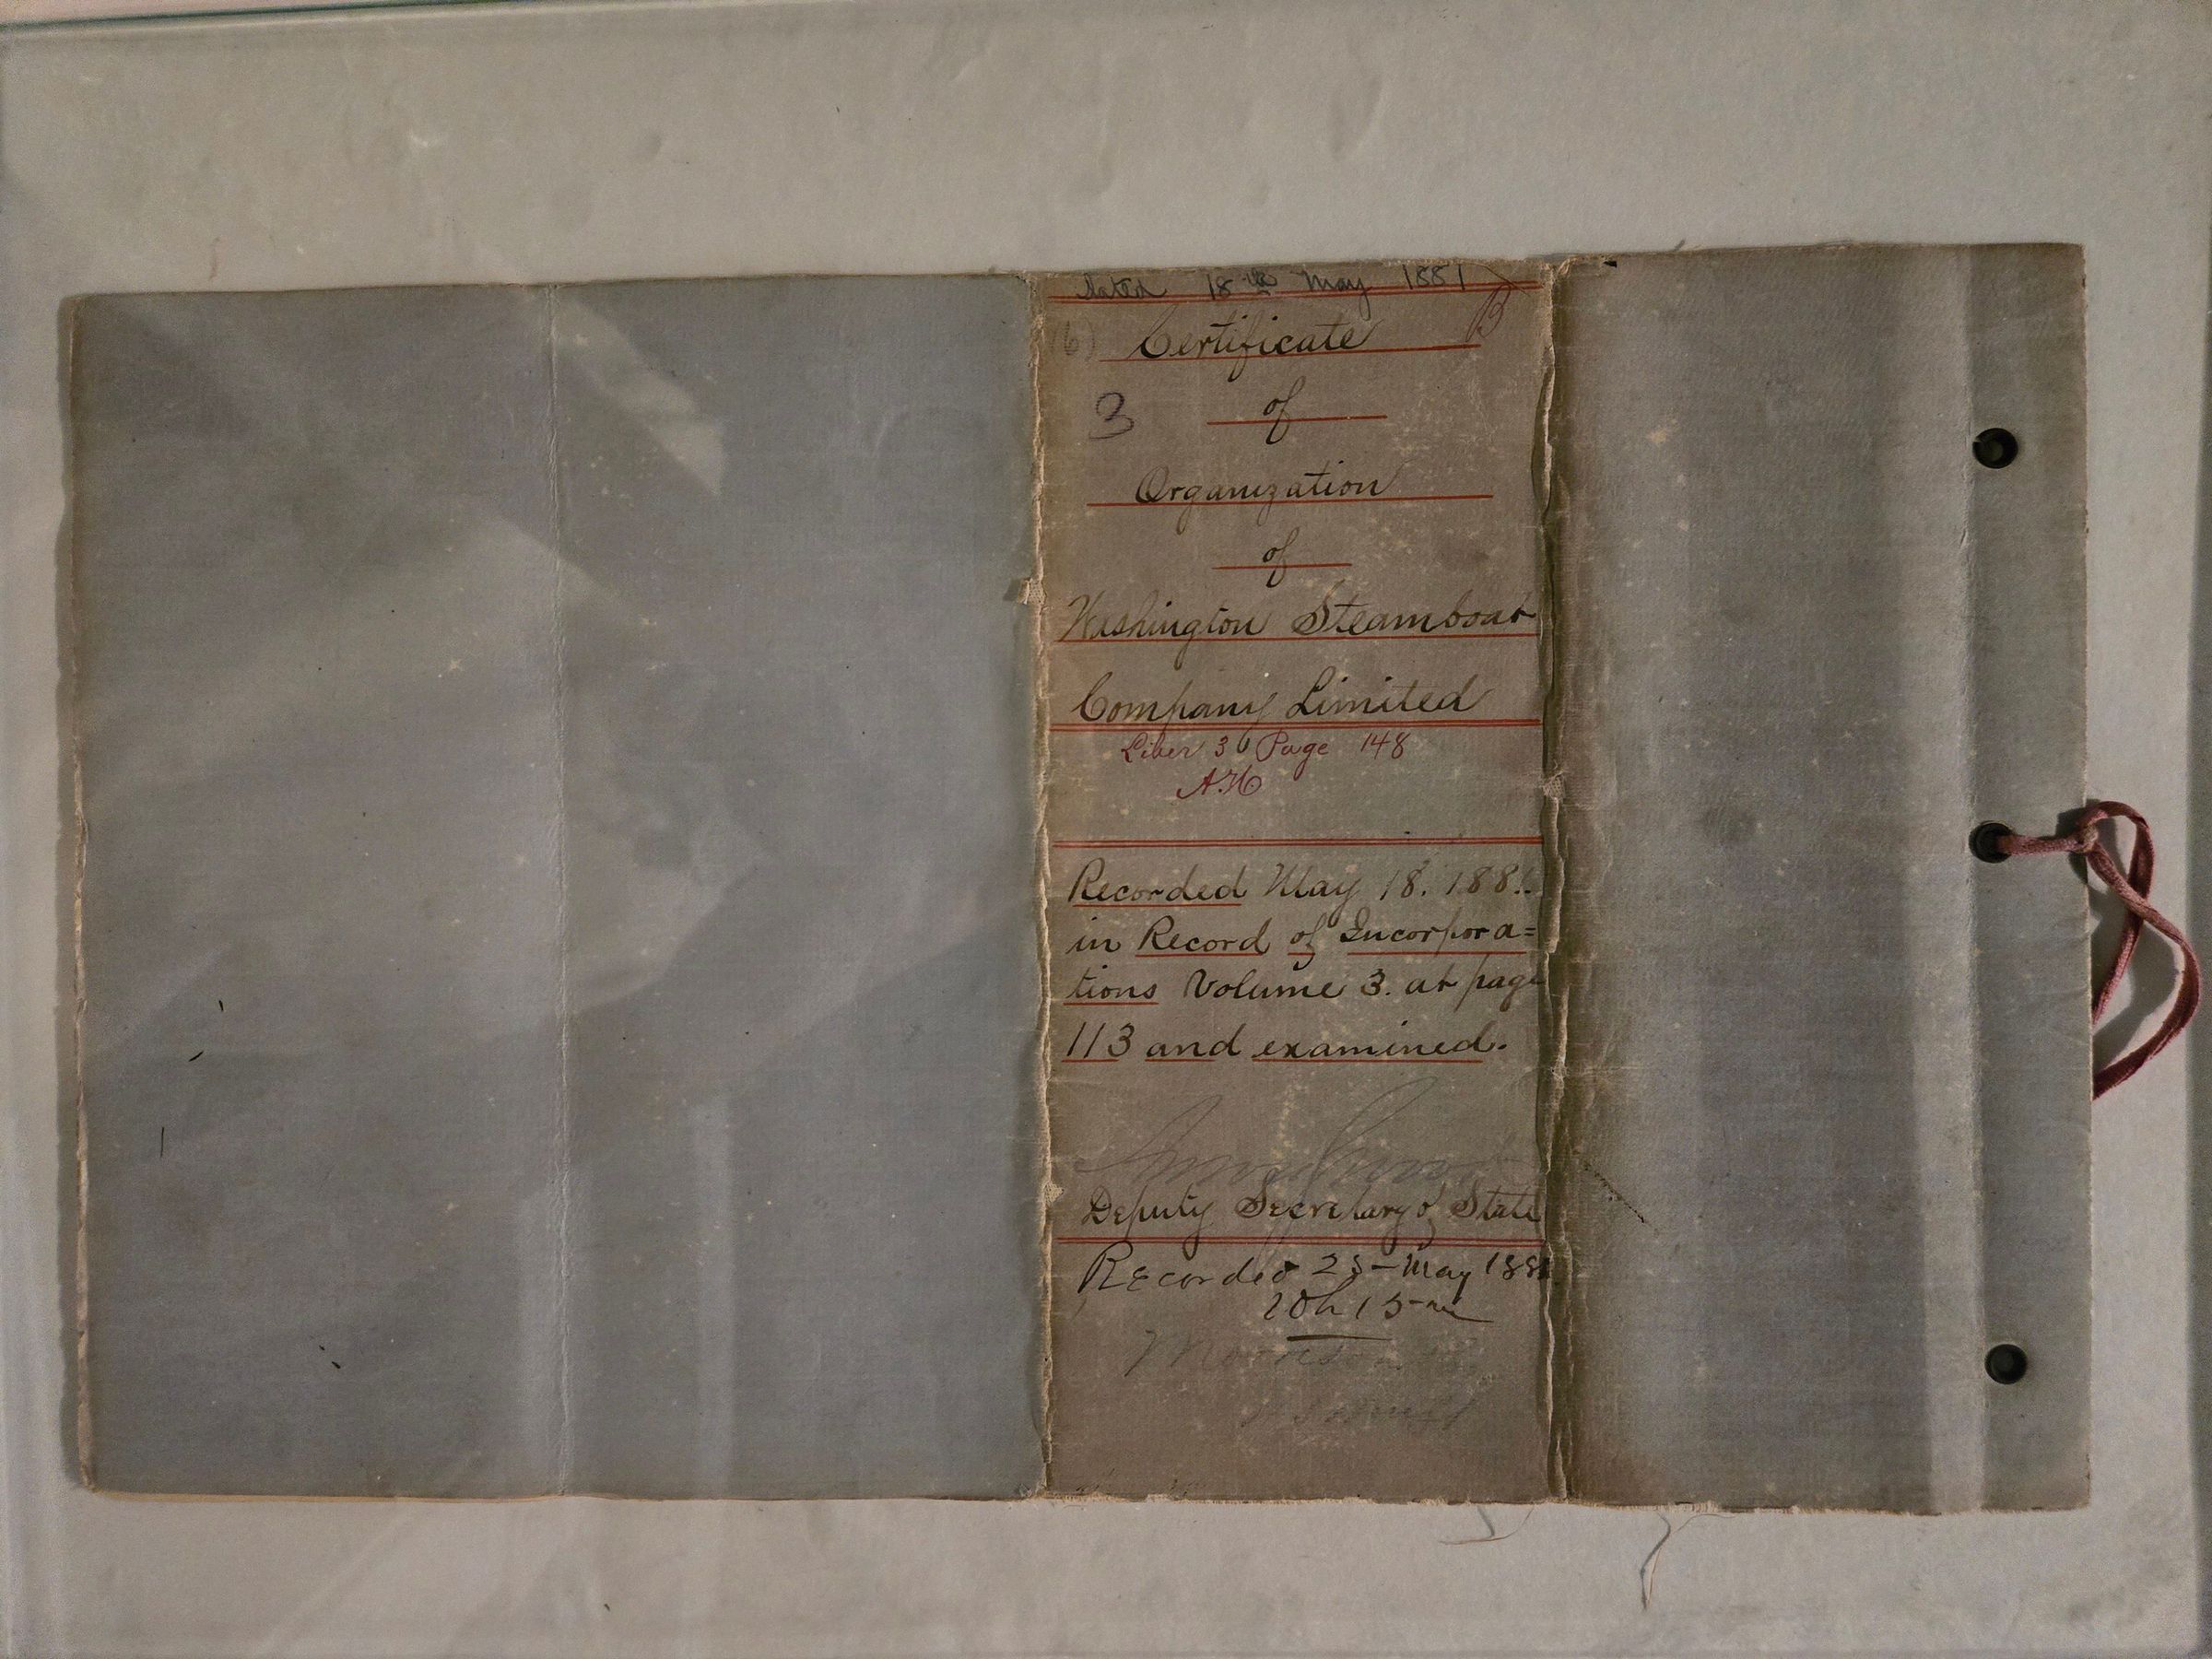 Dated 18th May 1881
B
(6) Certificate
3 of
Organization
of
Washington Steamboat
Company Limited
Liber 3 Page 148
A.H.
Recorded May 18. 188
in Record of Incorpora=
tions Volume 3. at page
113 and examined.
Deputy Secretary of State
Recorded 25 - May 188
10h 15 m
Morrison